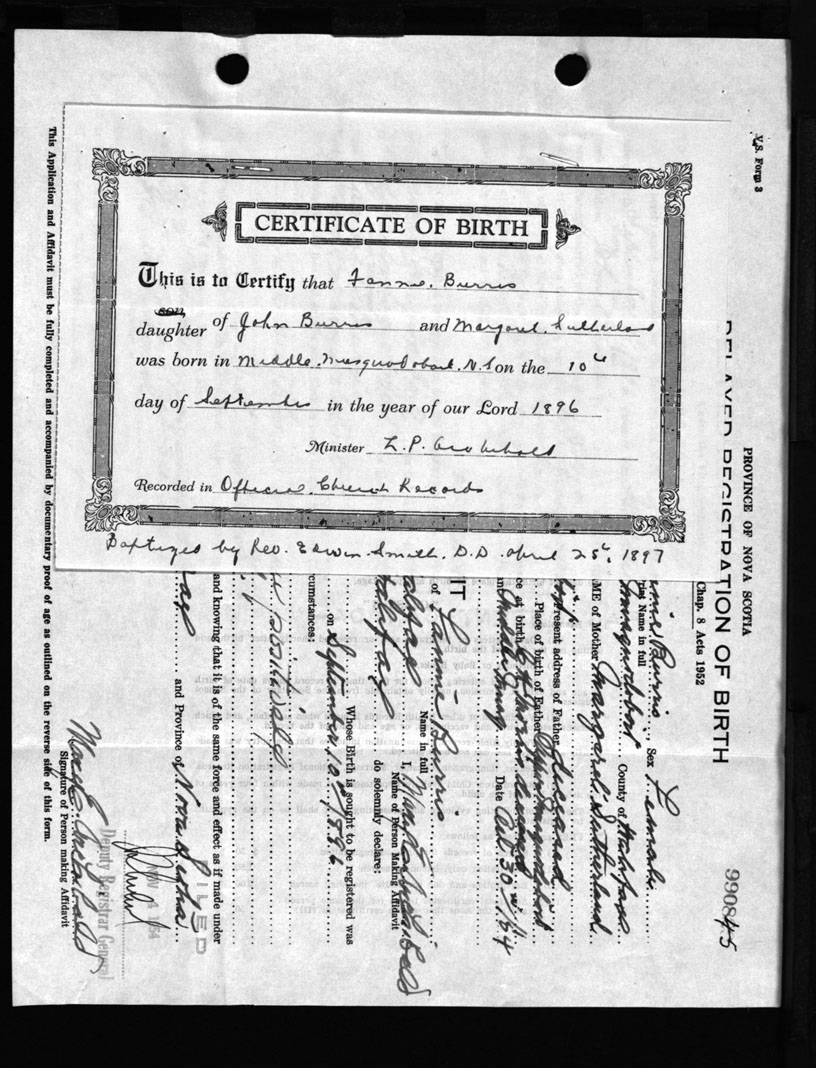 CERTIFICATE OF BIRTH
This is to Certify that Fannie Burris
son
daughter of John Burris and Margaret Sutherland
was born in Middle Musquodoboit N.S on the 10th
day of September in the year of our Lord 1896
Minister L.P. Archibald
Recorded in Official Church Records
Baptized by Rev. Edwin Smith, D.D. April 25th, 1897
V.S. Form 3
PROVINCE OF NOVA SCOTIA
DELAYED REGISTRATION OF BIRTH
Chap. 8 Acts 1952
990845
nnie Burris Sex Female
Name in full
Musquodoboit County of Halifax
ME of Mother Margaret Sutherland
Present address of Father deceased
Place of birth of Father
ce at birth
Middle Musq. Date Oct 30th 1954
IT
of Fannie Burris
Name in full
Halifax I,
Name of Person Making Affidavit
Halifax do solemnly declare:
Whose Birth is sought to be registered was
on September 10th 1896
circumstances:
and knowing that it is of the same force and effect as if made under
and Province of Nova Scotia
FILED
NOV 4 1954
Deputy Registrar General
Signature of Person making Affidavit
This Application and Affidavit must be fully completed and accompanied by documentary proof of age as outlined on the reverse side of this form.